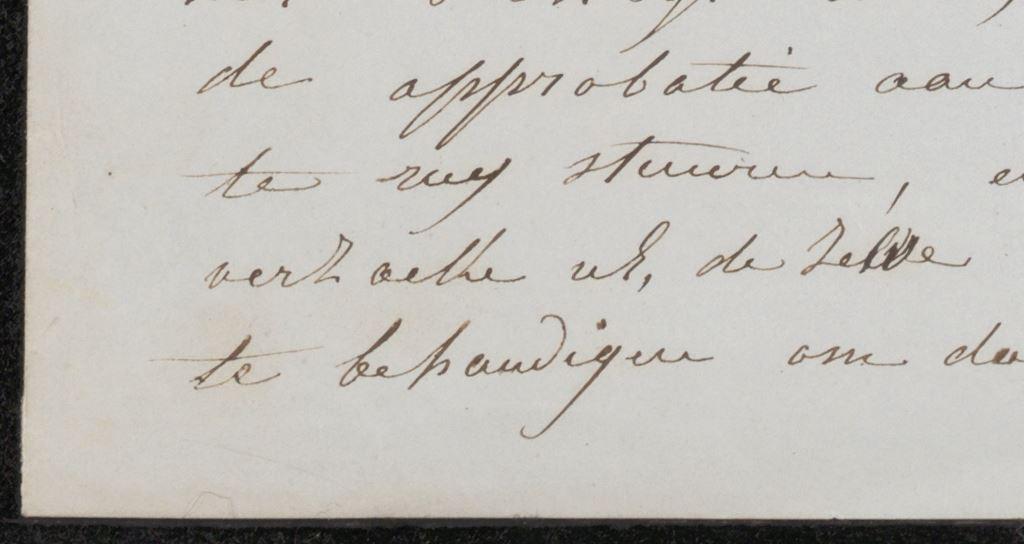 de approbatie aan
te rug stuuren, e
verzoeke uE, de zelve
te behandigen om da